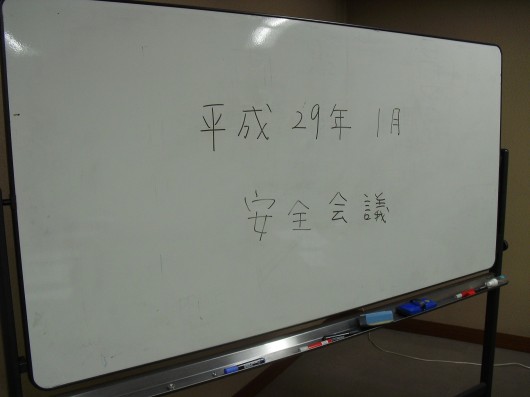 平成 29年 1月
安全会議